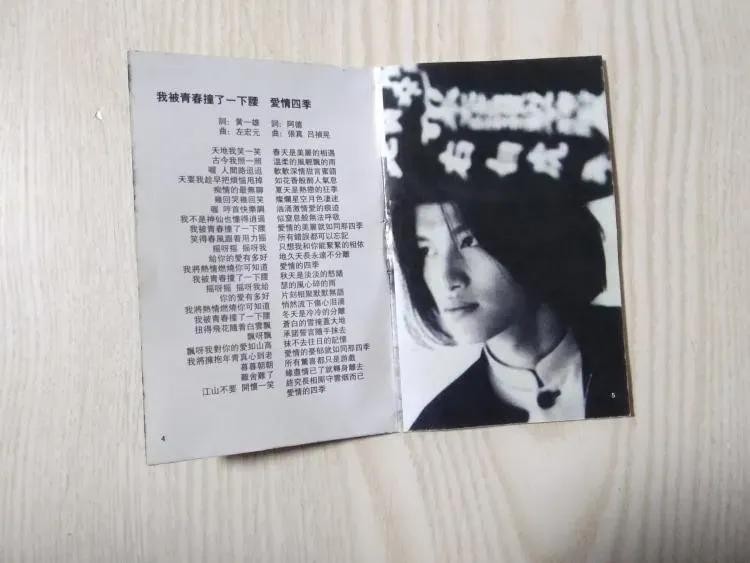 我被青春撞了一下腰
詞: 黃一雄
曲: 左宏元
天地我笑一笑
古今我照一照
喔 人間路迢迢
天要我趁早把煩惱甩掉
痴情的最無聊
幾回哭幾回笑
喔 哼首快樂調
我不是神仙也懂得逍遙
我被青春撞了一下腰
笑得春風跟著用力搖
搖呀搖 搖呀我
給你的愛有多好
我將熱情燃燒你可知道
我被青春撞了一下腰
搖呀搖 搖呀我給
你的愛有多好
我將熱情燃燒你可知道
我被青春撞了一下腰
扭得飛花隨著白雲飄
飄呀飄
飄呀我對你的愛如山高
我將擁抱年青真心到老
暮暮朝朝
難舍難了
江山不要 開懷一笑
愛情四季
詞: 阿德
曲: 張真 呂禎晃
春天是美麗的相遇
溫柔的風輕飄的雨
軟軟深情甜言蜜語
如花香般醉人氣息
夏天是熱戀的狂季
燦爛星空月色凄迷
洶涌激情愛的痕迹
似窒息般無法呼吸
愛情的美麗就如同那四季
所有錯誤都可以忘記
只想我和你能緊緊的相依
地久天長永遠不分離
愛情的四季
秋天是淡淡的愁緒
瑟的風心碎的雨
片刻相聚默默無語
悄然流下傷心泪滴
冬天是冷冷的分離
蒼白的雪掩蓋大地
承諾誓言隨手抹去
抹不去往日的記憶
愛情的憂郁就如同那四季
所有驚喜都只是游戲
緣盡情已了就轉身離去
終究長相厮守雲烟而已
愛情的四季
4
5